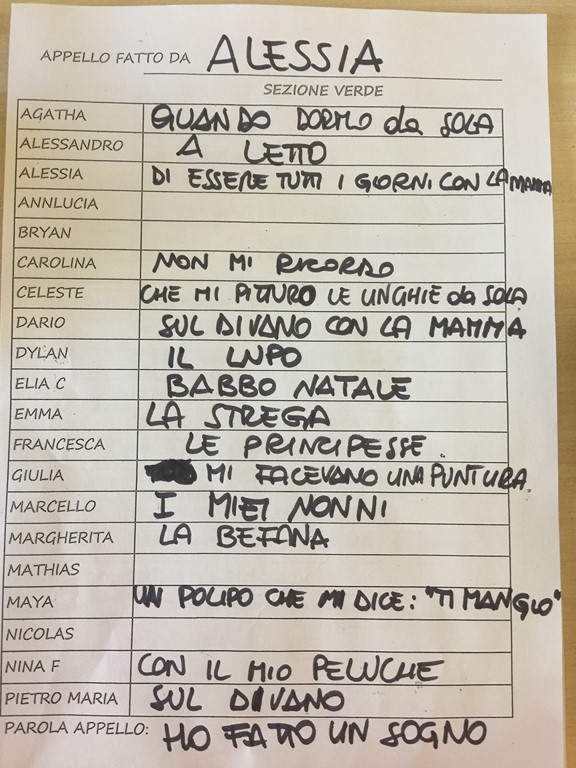 APPELLO FATTO DA ALESSIA
SEZIONE VERDE
AGATHA QUANDO DORMO da SOLA
ALESSANDRO A LETTO
ALESSIA DI ESSERE TUTTI I GIORNI CON LA MAMMA
ANNLUCIA
BRYAN
CAROLINA NON MI RICORDO
CELESTE CHE MI PITTURO LE UNGHIE da SOLA
DARIO SUL DIVANO CON LA MAMMA
DYLAN IL LUPO
ELIA C BABBO NATALE
EMMA LA STREGA
FRANCESCA LE PRINCIPESSE.
GIULIA MI FACEVANO UNA PUNTURA.
MARCELLO I MIEI NONNI
MARGHERITA LA BEFANA
MATHIAS
MAYA UN POLIPO CHE MI DICE: "TI MANGIO"
NICOLAS
NINA F CON IL MIO PELUCHE
PIETRO MARIA SUL DIVANO
PAROLA APPELLO: HO FATTO UN SOGNO